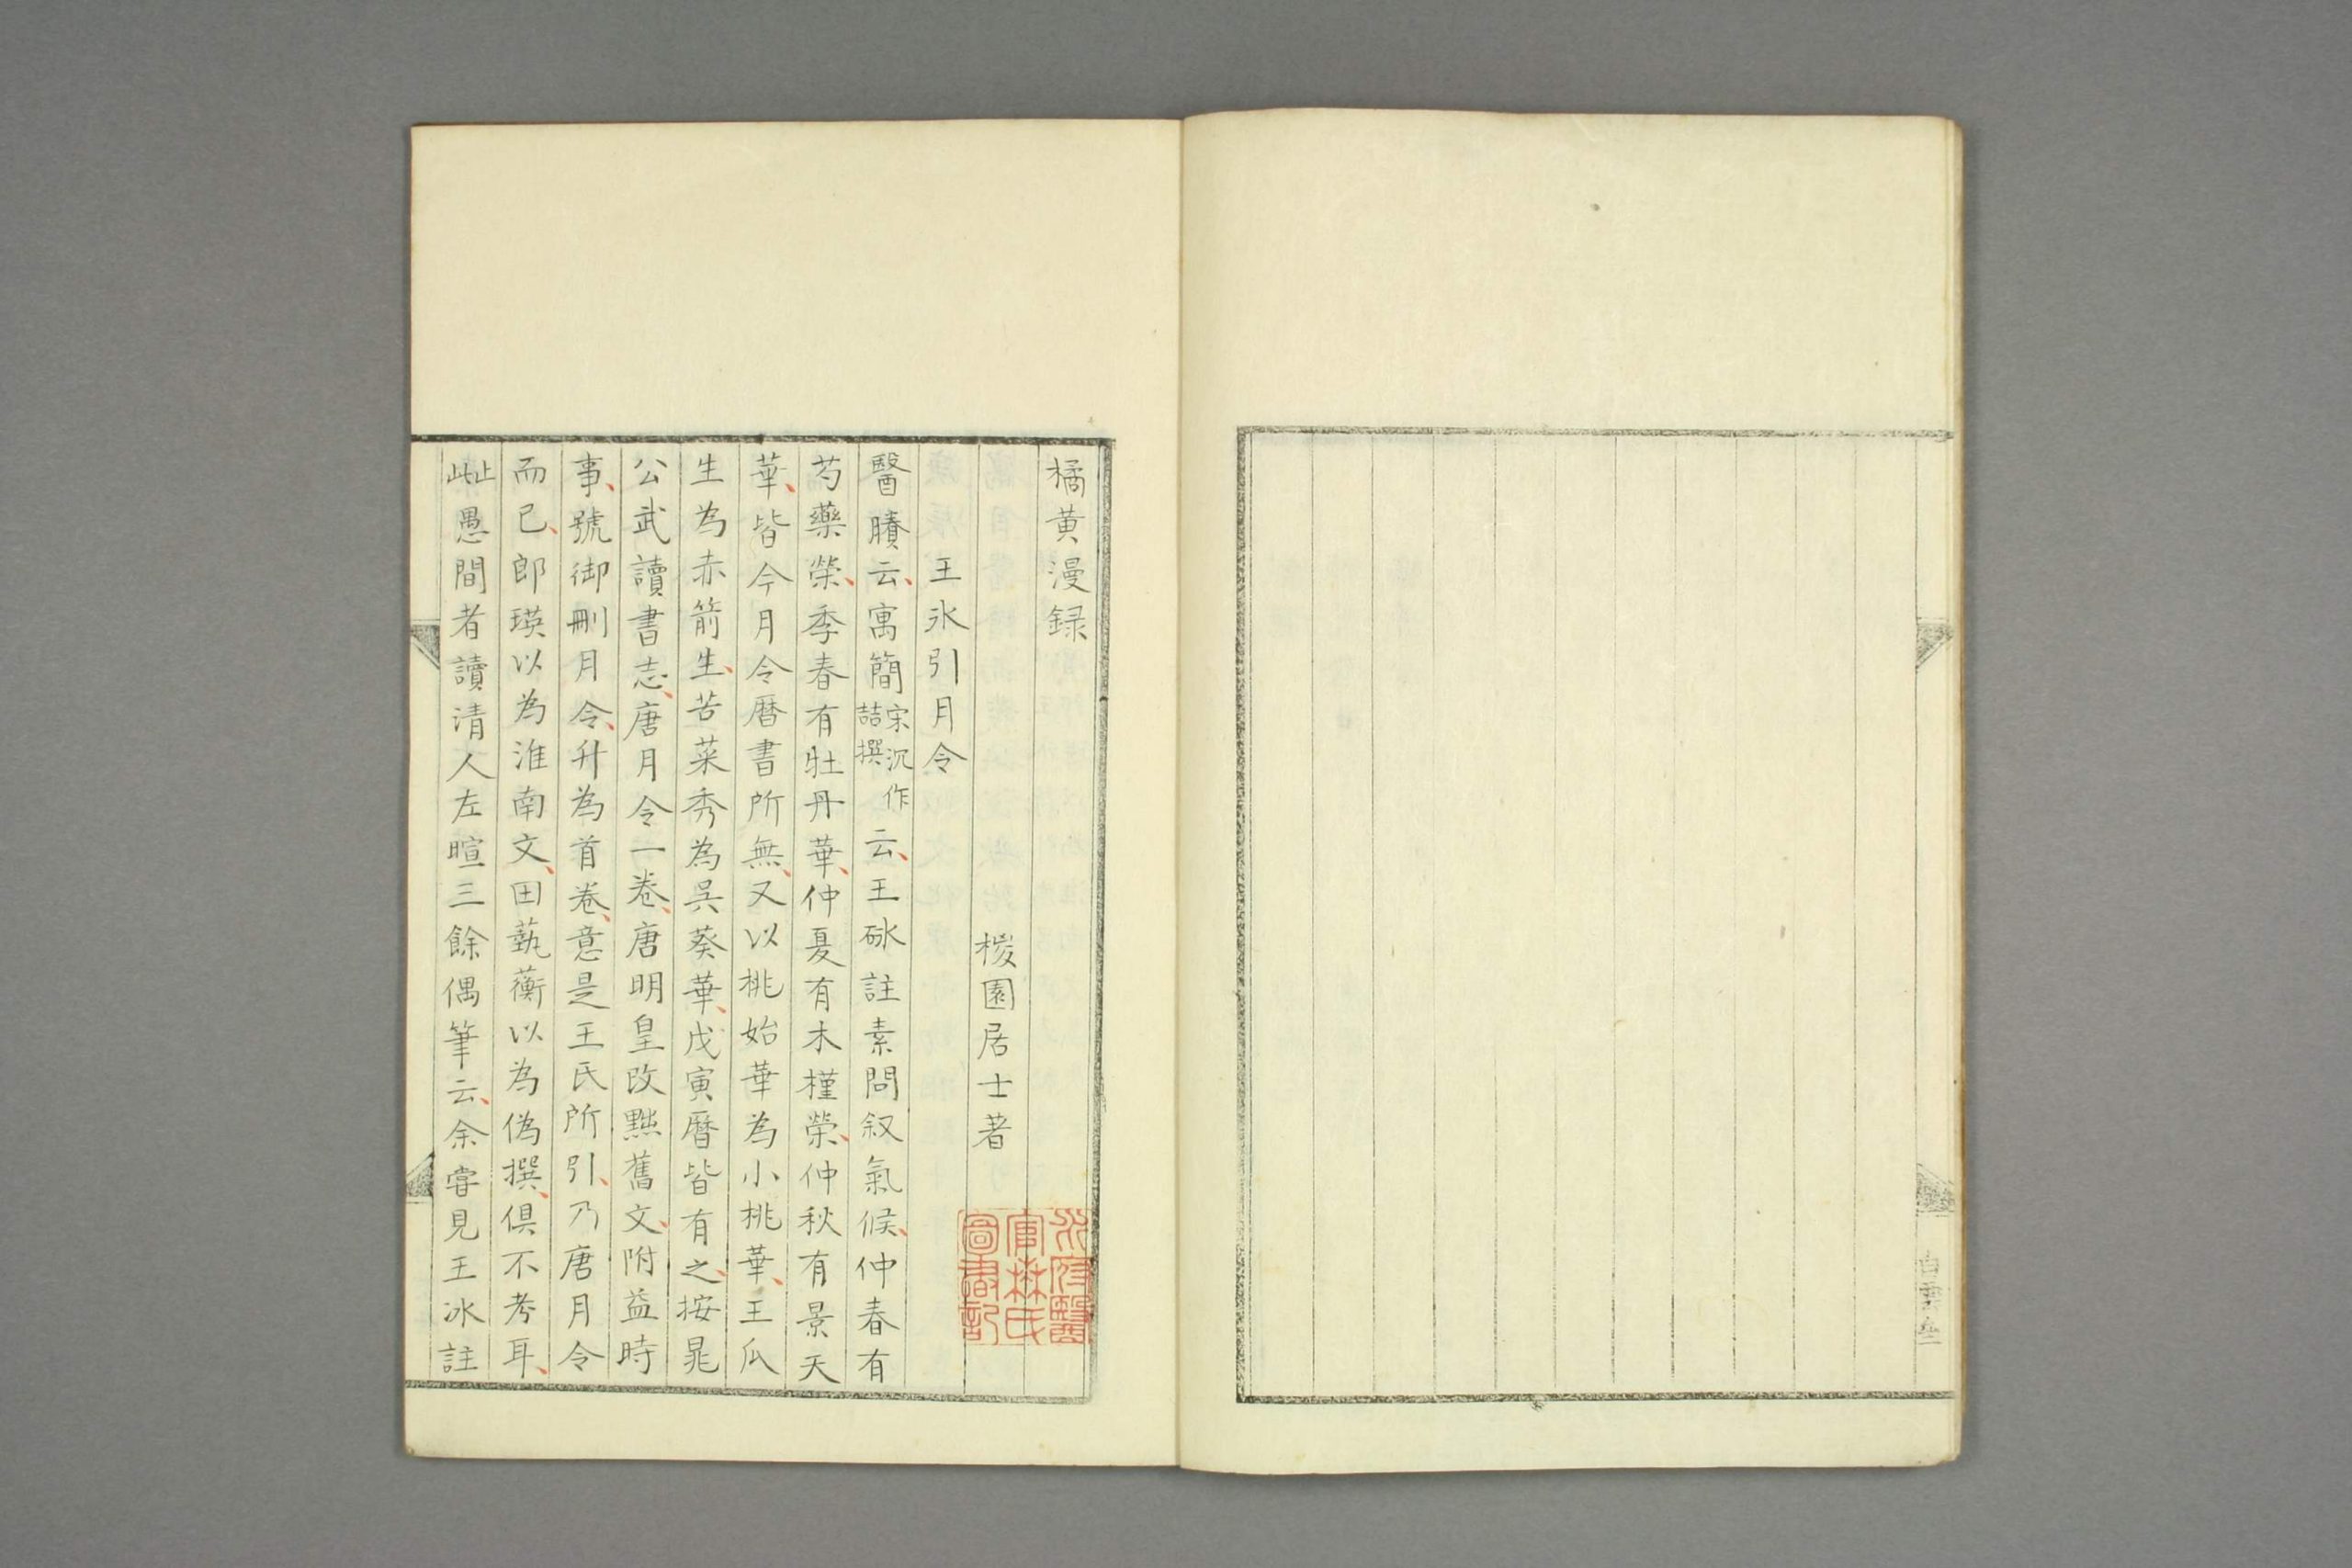 橘黄漫録
棭園居士著
王氷引月令
醫賸云寓簡宋沉作喆撰云王砅註素問叙氣候仲春有
芍藥榮季春有牡丹華仲夏有木槿榮仲秋有景天
華皆今月令曆書所無又以桃始華為小桃華王瓜
生為赤箭生苦菜秀為呉葵華戊寅曆皆有之按晁
公武讀書志唐月令一卷唐明皇改黜舊文附益時
事號御刪月令升為首卷意是王氏所引乃唐月令
而已郎瑛以為淮南文田藝蘅以為偽撰俱不考耳
愚間者讀清人左暄三餘偶筆云余嘗見王冰註
白雲